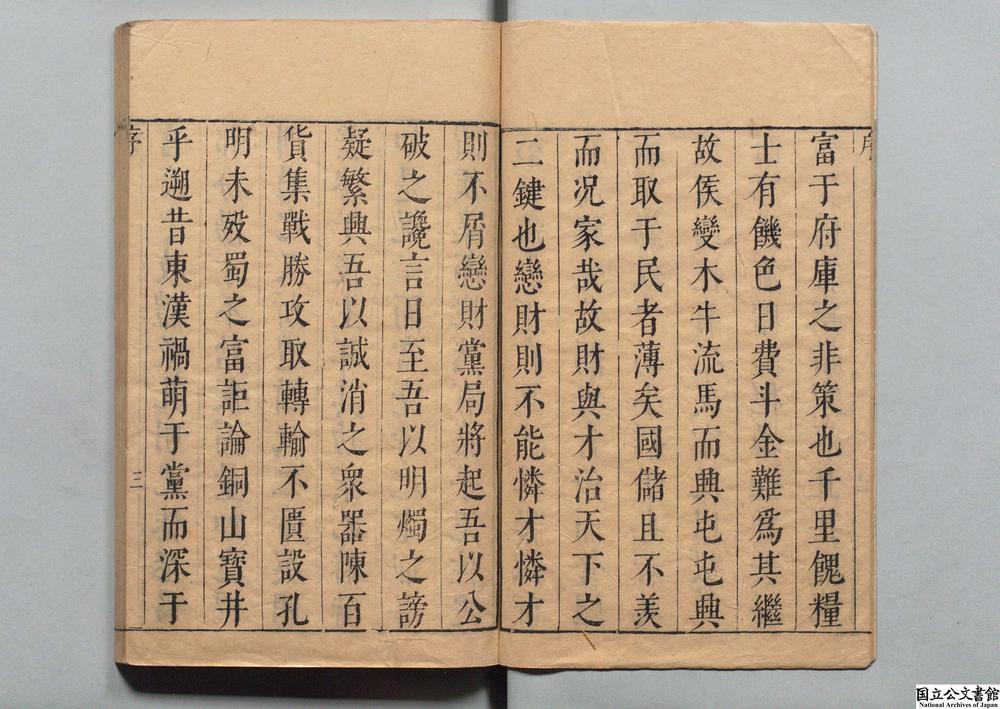 序
富于府庫之非策也千里餽糧
士有饑色日費斗金難爲其繼
故侯變木牛流馬而興屯屯興
而取于民者薄矣國儲且不羨
而况家哉故財與才治天下之
二鍵也戀財則不能憐才憐才
則不屑戀財黨局將起吾以公
破之讒言日至吾以明燭之謗
疑繁興吾以誠消之衆器陳百
貨集戰勝攻取轉輸不匱設孔
明未歿蜀之富詎論銅山寶井
乎遡昔東漢禍萌于黨而深于
序
三
国立公文書館
National Archives of Japan